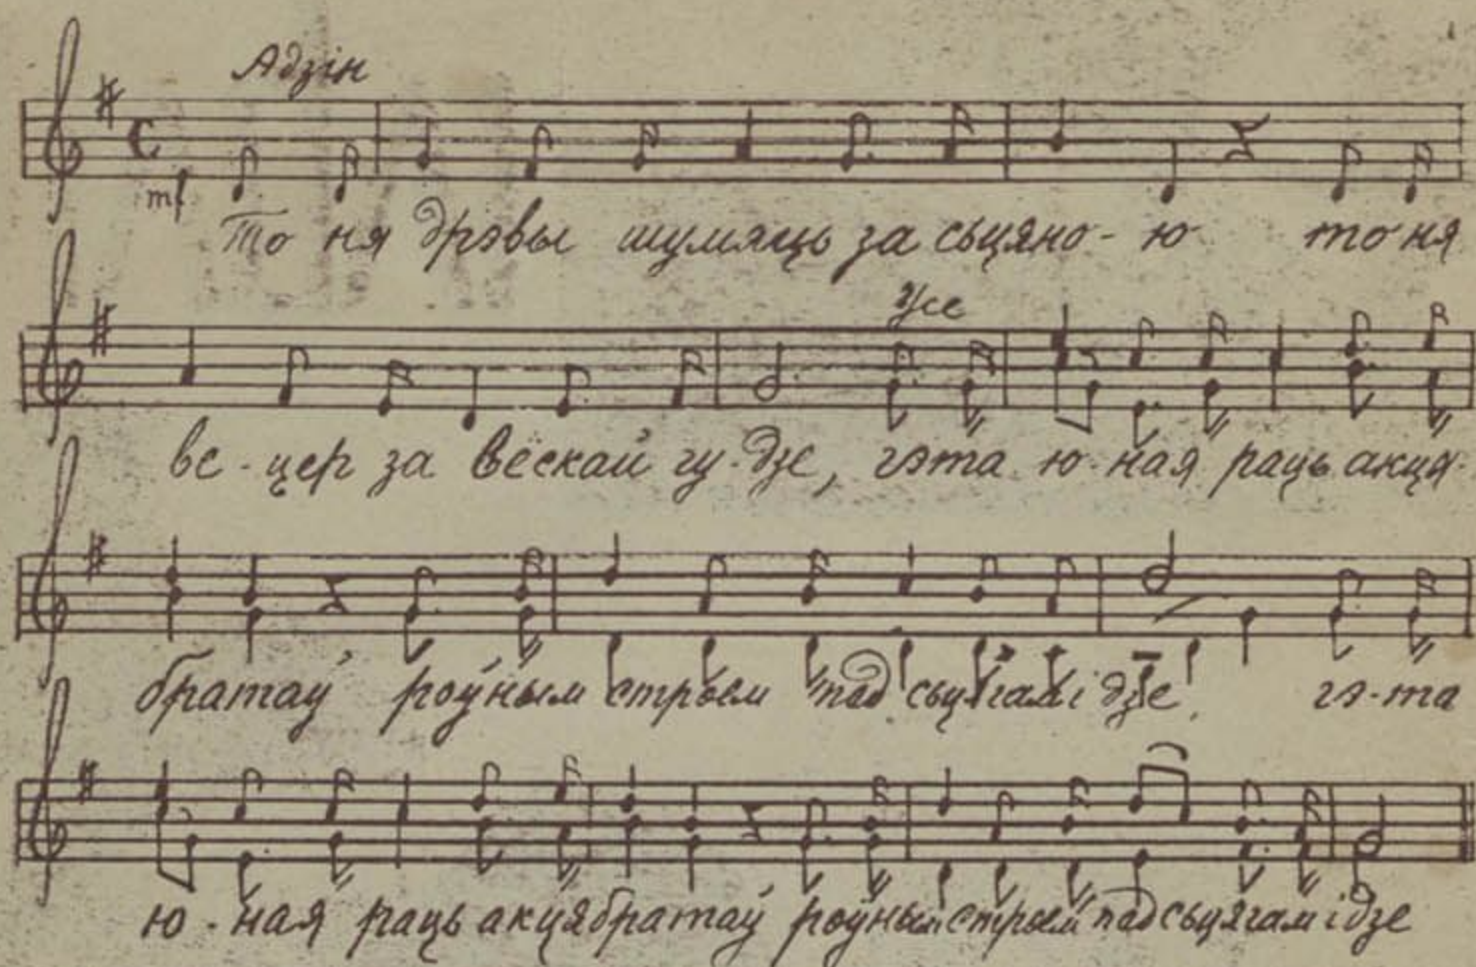 Адзін
mf
То ня дрэвы шумяць за сьцяно-ю то ня
Усе
ве-цер за вёскай гу-дзе, гэта ю-ная раць акця-
братаў роўным строем пад сьцягам ідзе гэ-та
ю-ная раць акцябратаў роўным строем пад сьцягам ідзе